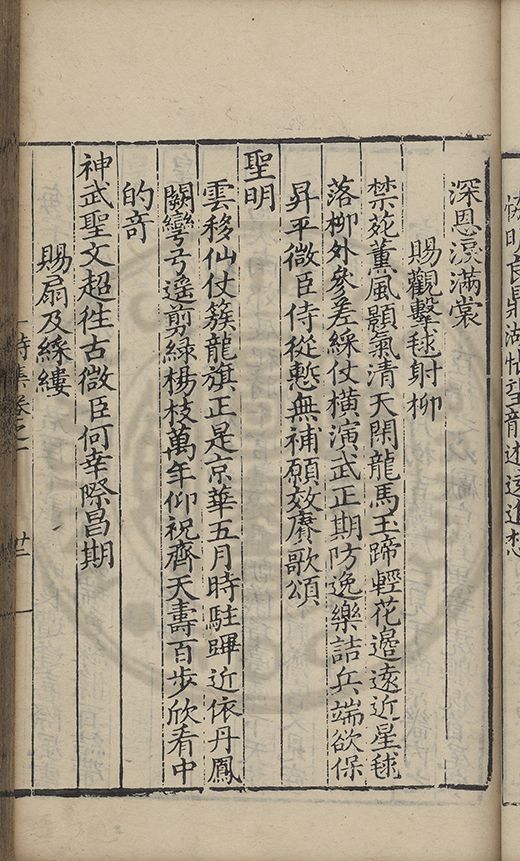 深恩淚滿裳
賜觀擊毬射柳
禁苑薰風顥氣清天閑龍馬玉蹄輕花邊遠近星毬
落柳外參差綵仗橫演武正期防逸樂詰兵端欲保
昇平微臣侍從慙無補願效賡歌頌
聖明
雲移仙仗簇龍旗正是京華五月時駐蹕近依丹鳳
闕彎弓遥剪綠楊枝萬年仰祝齊天壽百步欣看中
的竒
神武聖文超徃古微臣何幸際昌期
賜扇及綵縷
詩集卷之一 廿二